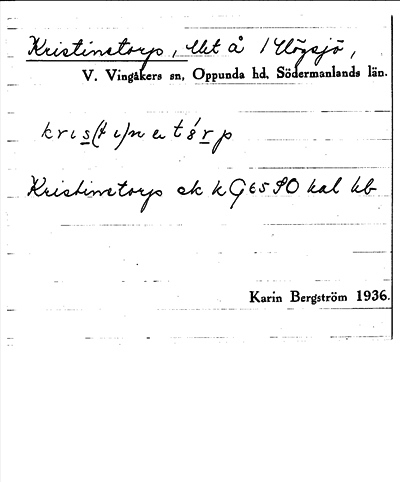 Kristinetorp, Ut å 1 Högsjö,
V. Vingåkers sn, Oppunda hd, Södermanlands län.
kris(ti)netórp
Kristinetorp ek k G6590 hal hb
Karin Bergström 1936.